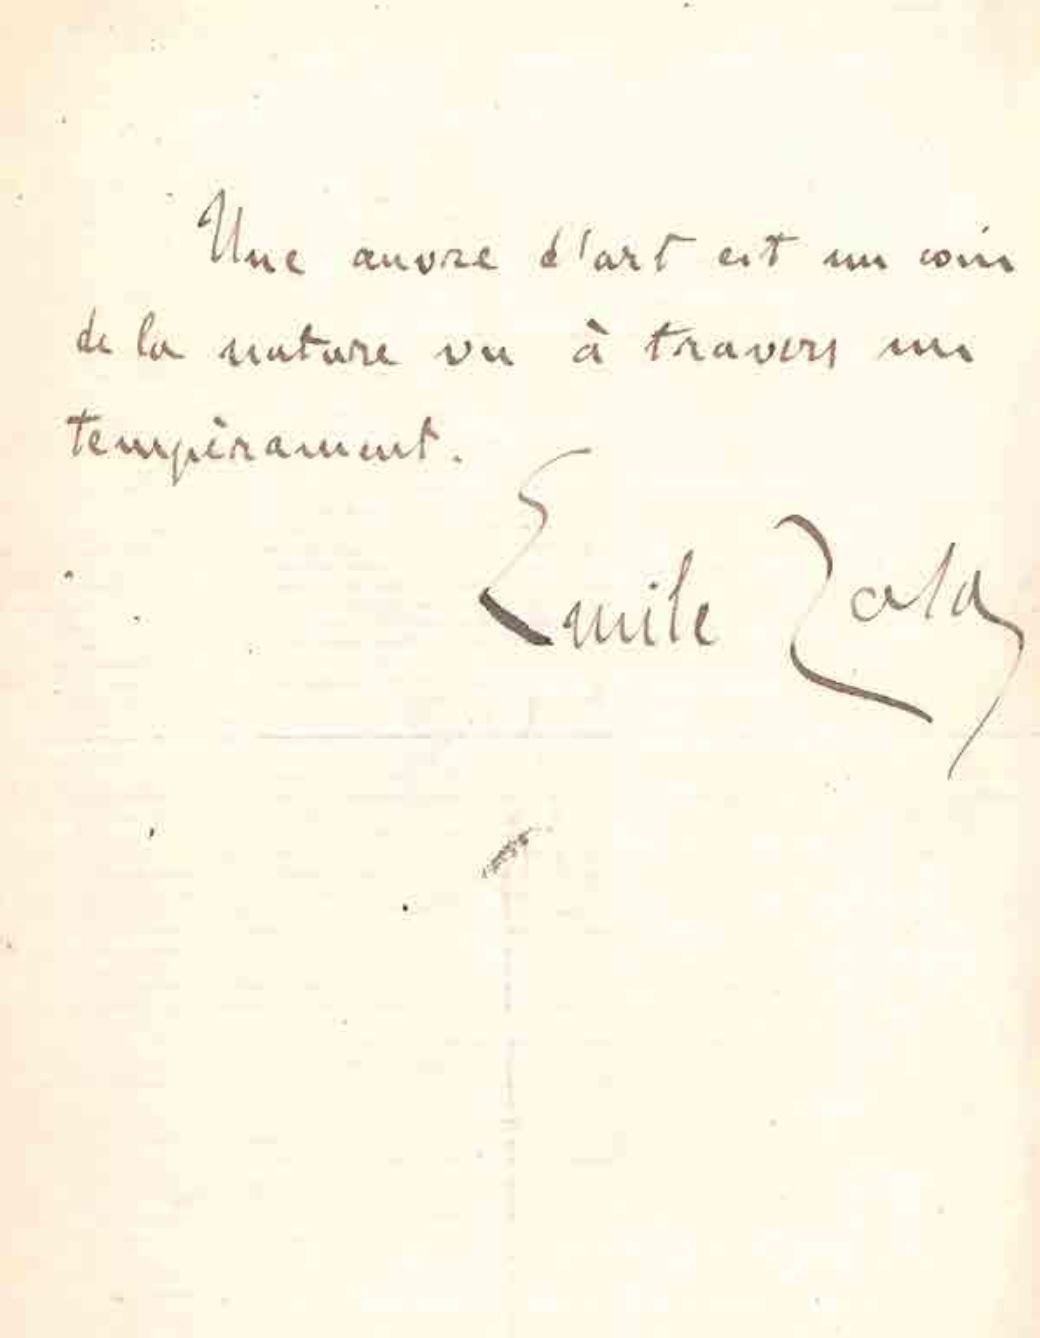 Une œuvre d'art est un coin
de la nature vu à travers un
tempérament.
Emile Zola